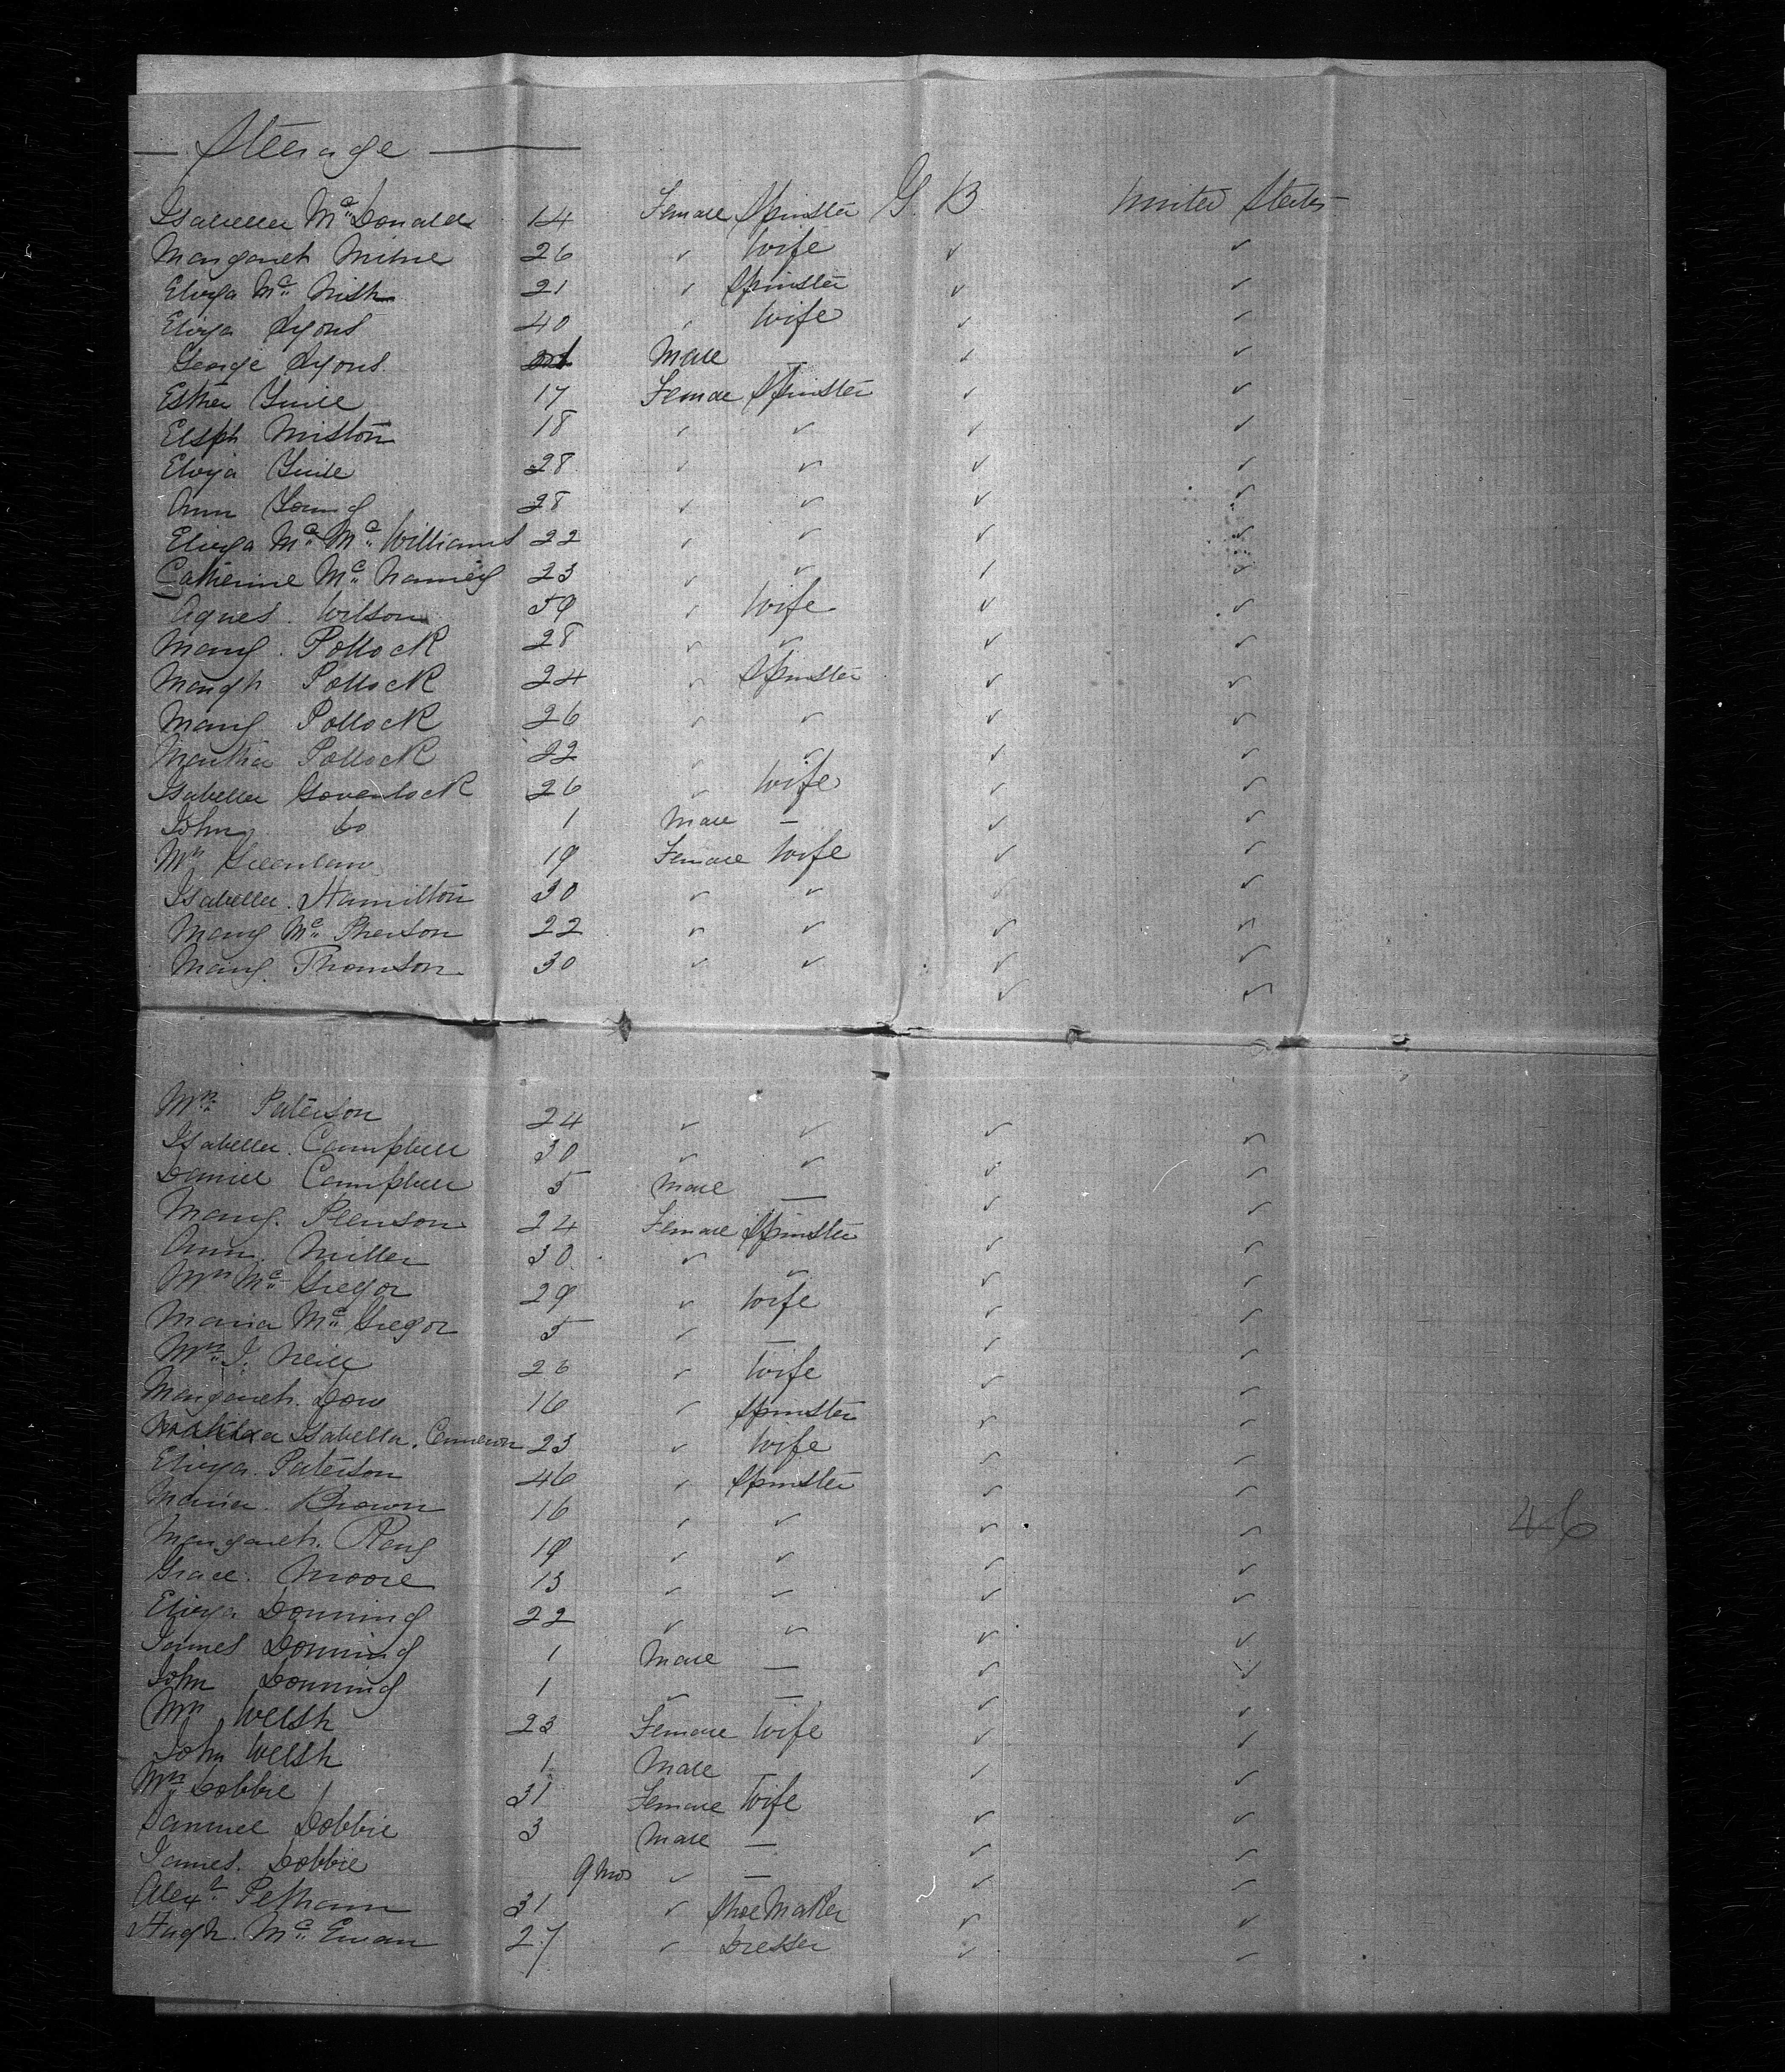 Steerage
Isabella Mc Donald 14 Female Spinster G. B. United States
Margaret Milne 26 " Wife " "
Eliza Mc Nish 21 " Spinster " "
Eliza Lyons 40 " Wife " "
George Lyons Male — " "
Esther Yuill 17 Female Spinster " "
Elsph 18 " " " "
Eliza Yuill 28 " " " "
Ann Young 28 " " " "
Eliza Mc Mc Williams 22 " " " "
Catherine Mc 23 " " " "
Agnes Wilson 59 " Wife " "
Mary Pollock 28 " " " "
Margt Pollock 24 " Spinster " "
Mary Pollock 26 " " " "
Martha Pollock 22 " " " "
Isabella Govenlock 26 " Wife " "
John Do 1 Male — " "
Mrs Greenlaw 19 Female Wife " "
Isabella Hamilton 30 " " " "
Mary Mc Pherson 22 " " " "
Mary Thomson 30 " " " "
" "
Mrs Paterson 24 " " " "
Isabella Campbell 30 " " " "
Daniel Campbell 5 Male — " "
Mary 24 Female Spinster " "
Ann Miller 30 " " " "
Mrs Mc Gregor 29 " Wife " "
Maria Mc Gregor 5 " — " "
Mrs J. Neill 26 " Wife " "
Margaret Dow 16 " Spinster " "
Isabella Cameron 23 " Wife " "
Eliza Paterson 46 " Spinster " "
Maria Brown 16 " " " "
Margaret 19 " " " " 46
Grace Moore 13 " " " "
Eliza Donning 22 " " " "
James Donning 1 Male — " "
John Donning 1 " — " "
Mrs Welsh 23 Female Wife " "
John Welsh 1 Male — " "
Mrs Dobbie 31 Female Wife " "
Samuel Dobbie 3 Male — " "
James Dobbie 9 mos " — " "
Alexr 31 " Shoe Maker " "
Hugh Mc Ewan 27 " Dresser " "